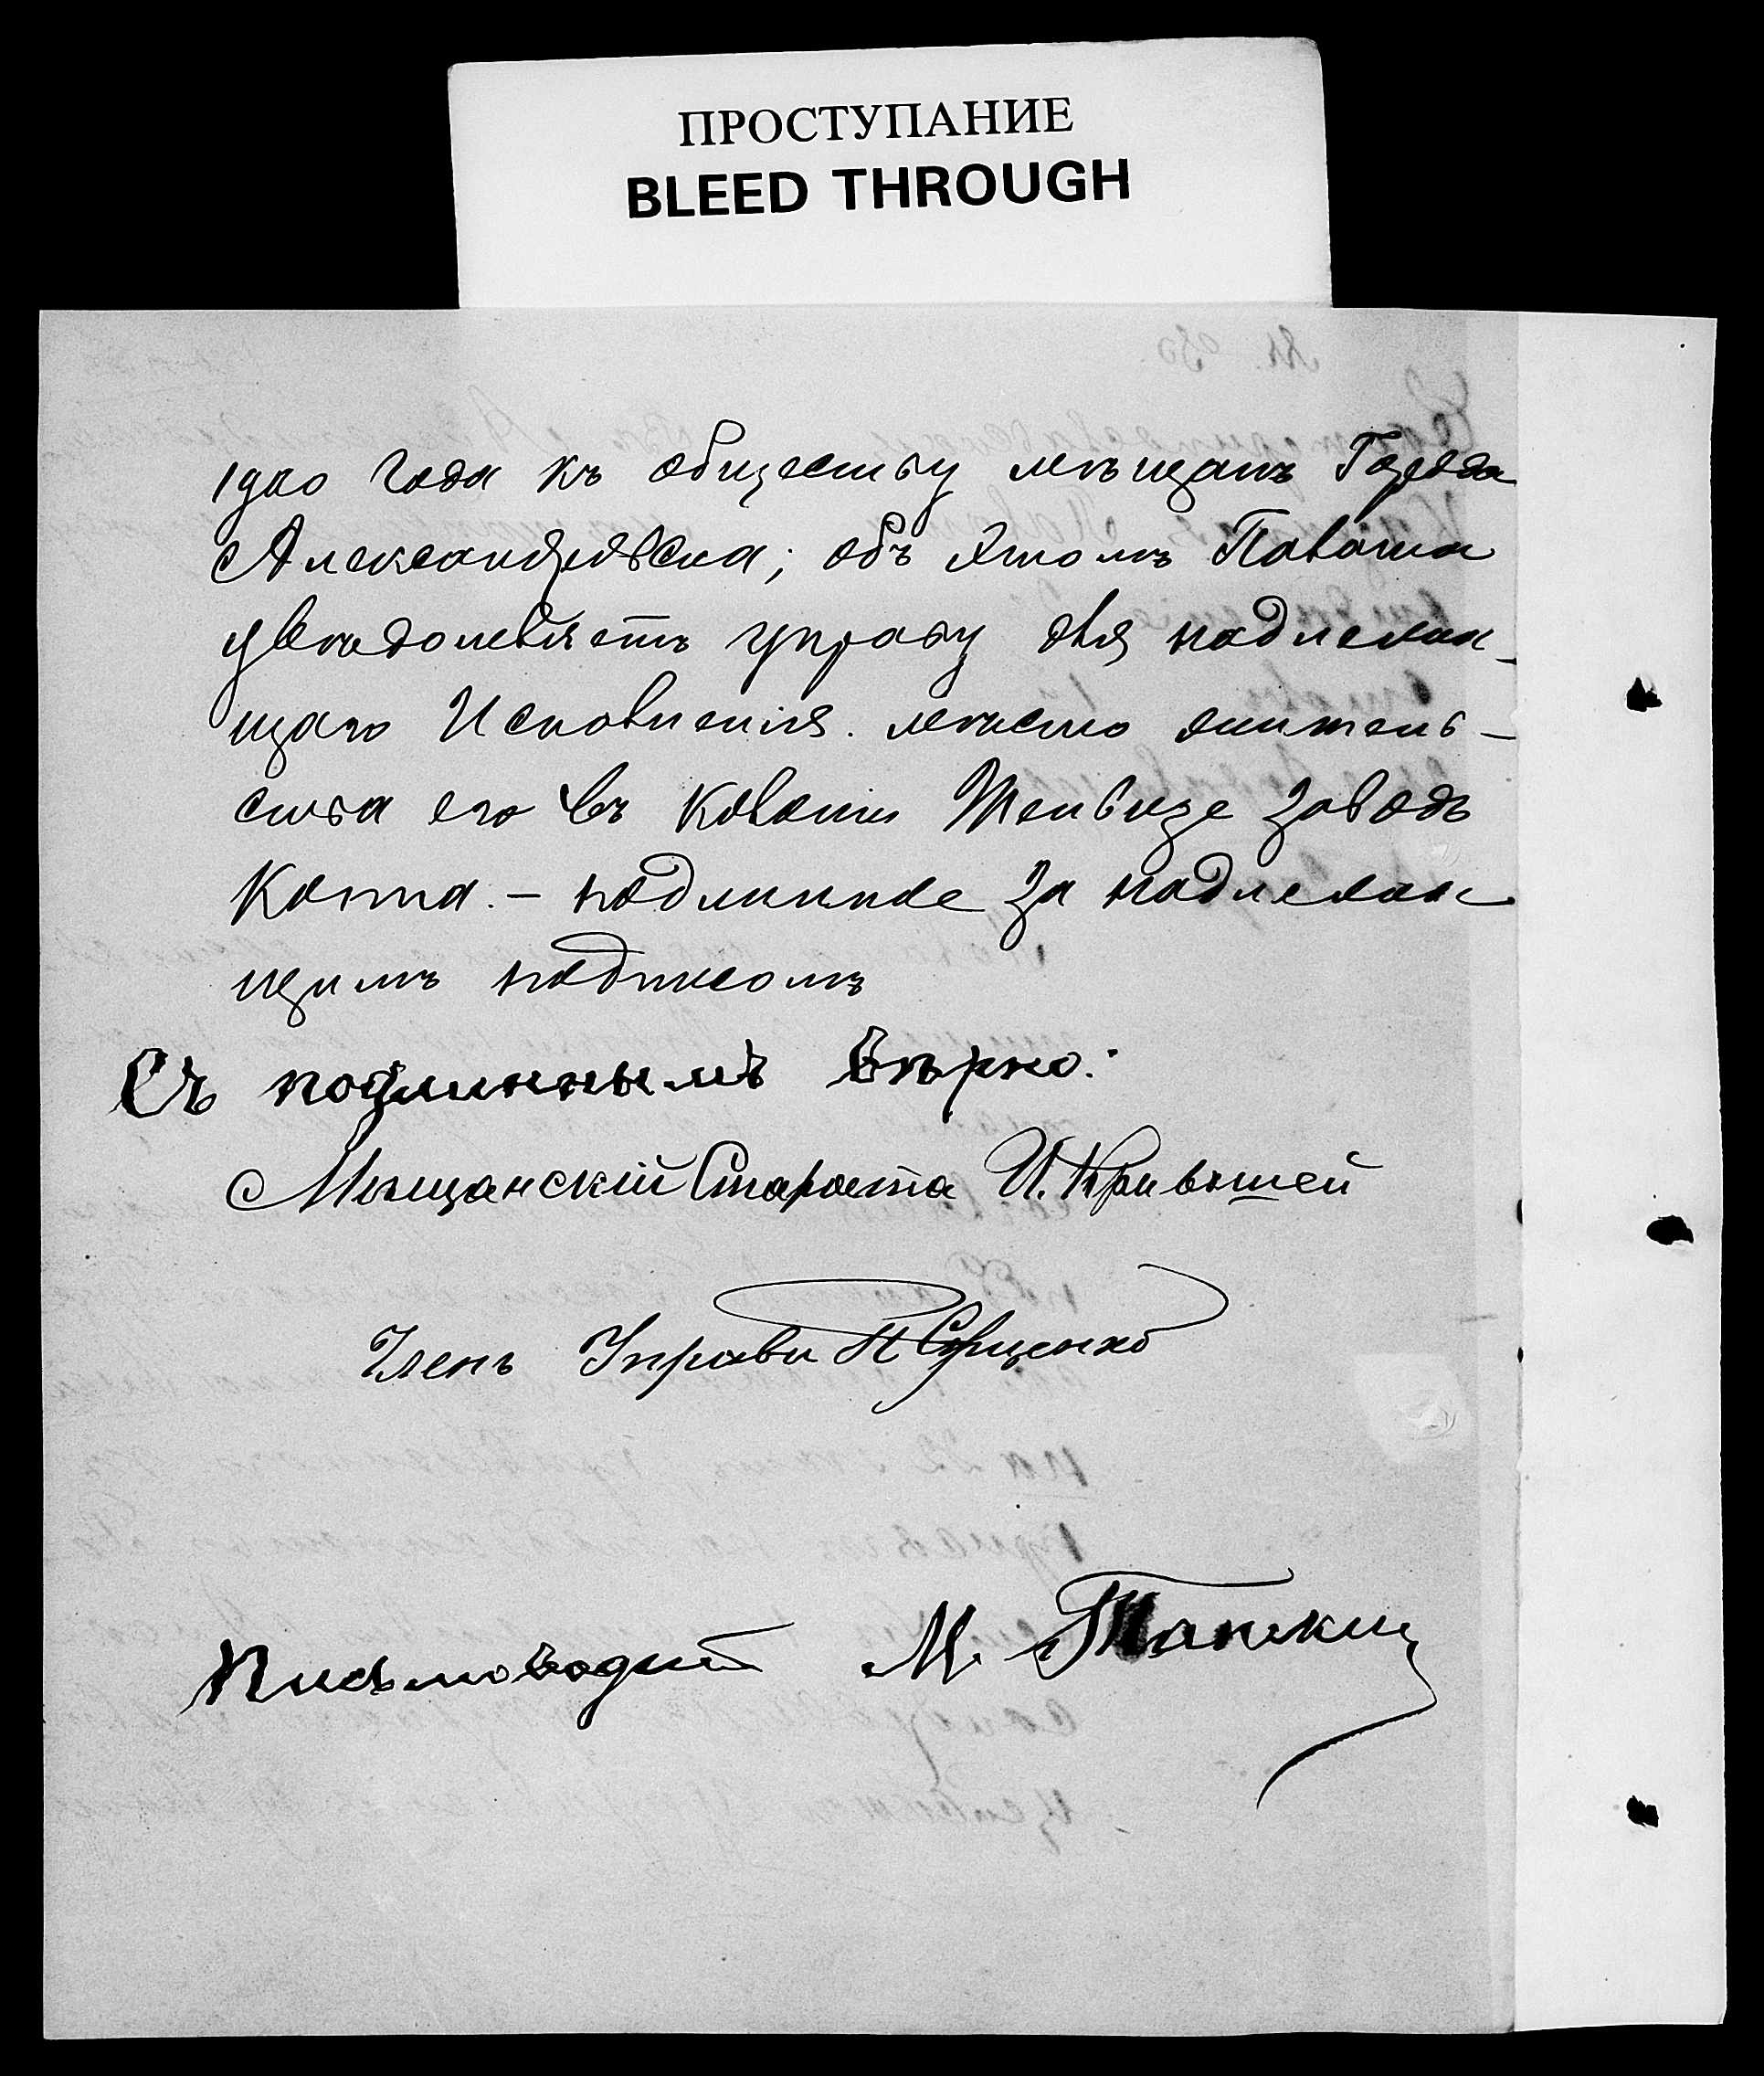 ПРОСТУПАНИЕ
BLEED THROUGH
года къ обществу мѣщанъ Города
Александровска; объ этомъ Палата
увѣдомляетъ управу для надлежа-
щаго Исполненія. мѣсто житель-
ства его въ колоніи Шенвизе заводъ
Коппа. – подлинное за надлежа
щимъ подписомъ
Съ подлиннымъ вѣрно:
Мѣщанскій Староста И. Кривошей
Членъ Управы
Письмоводит М.